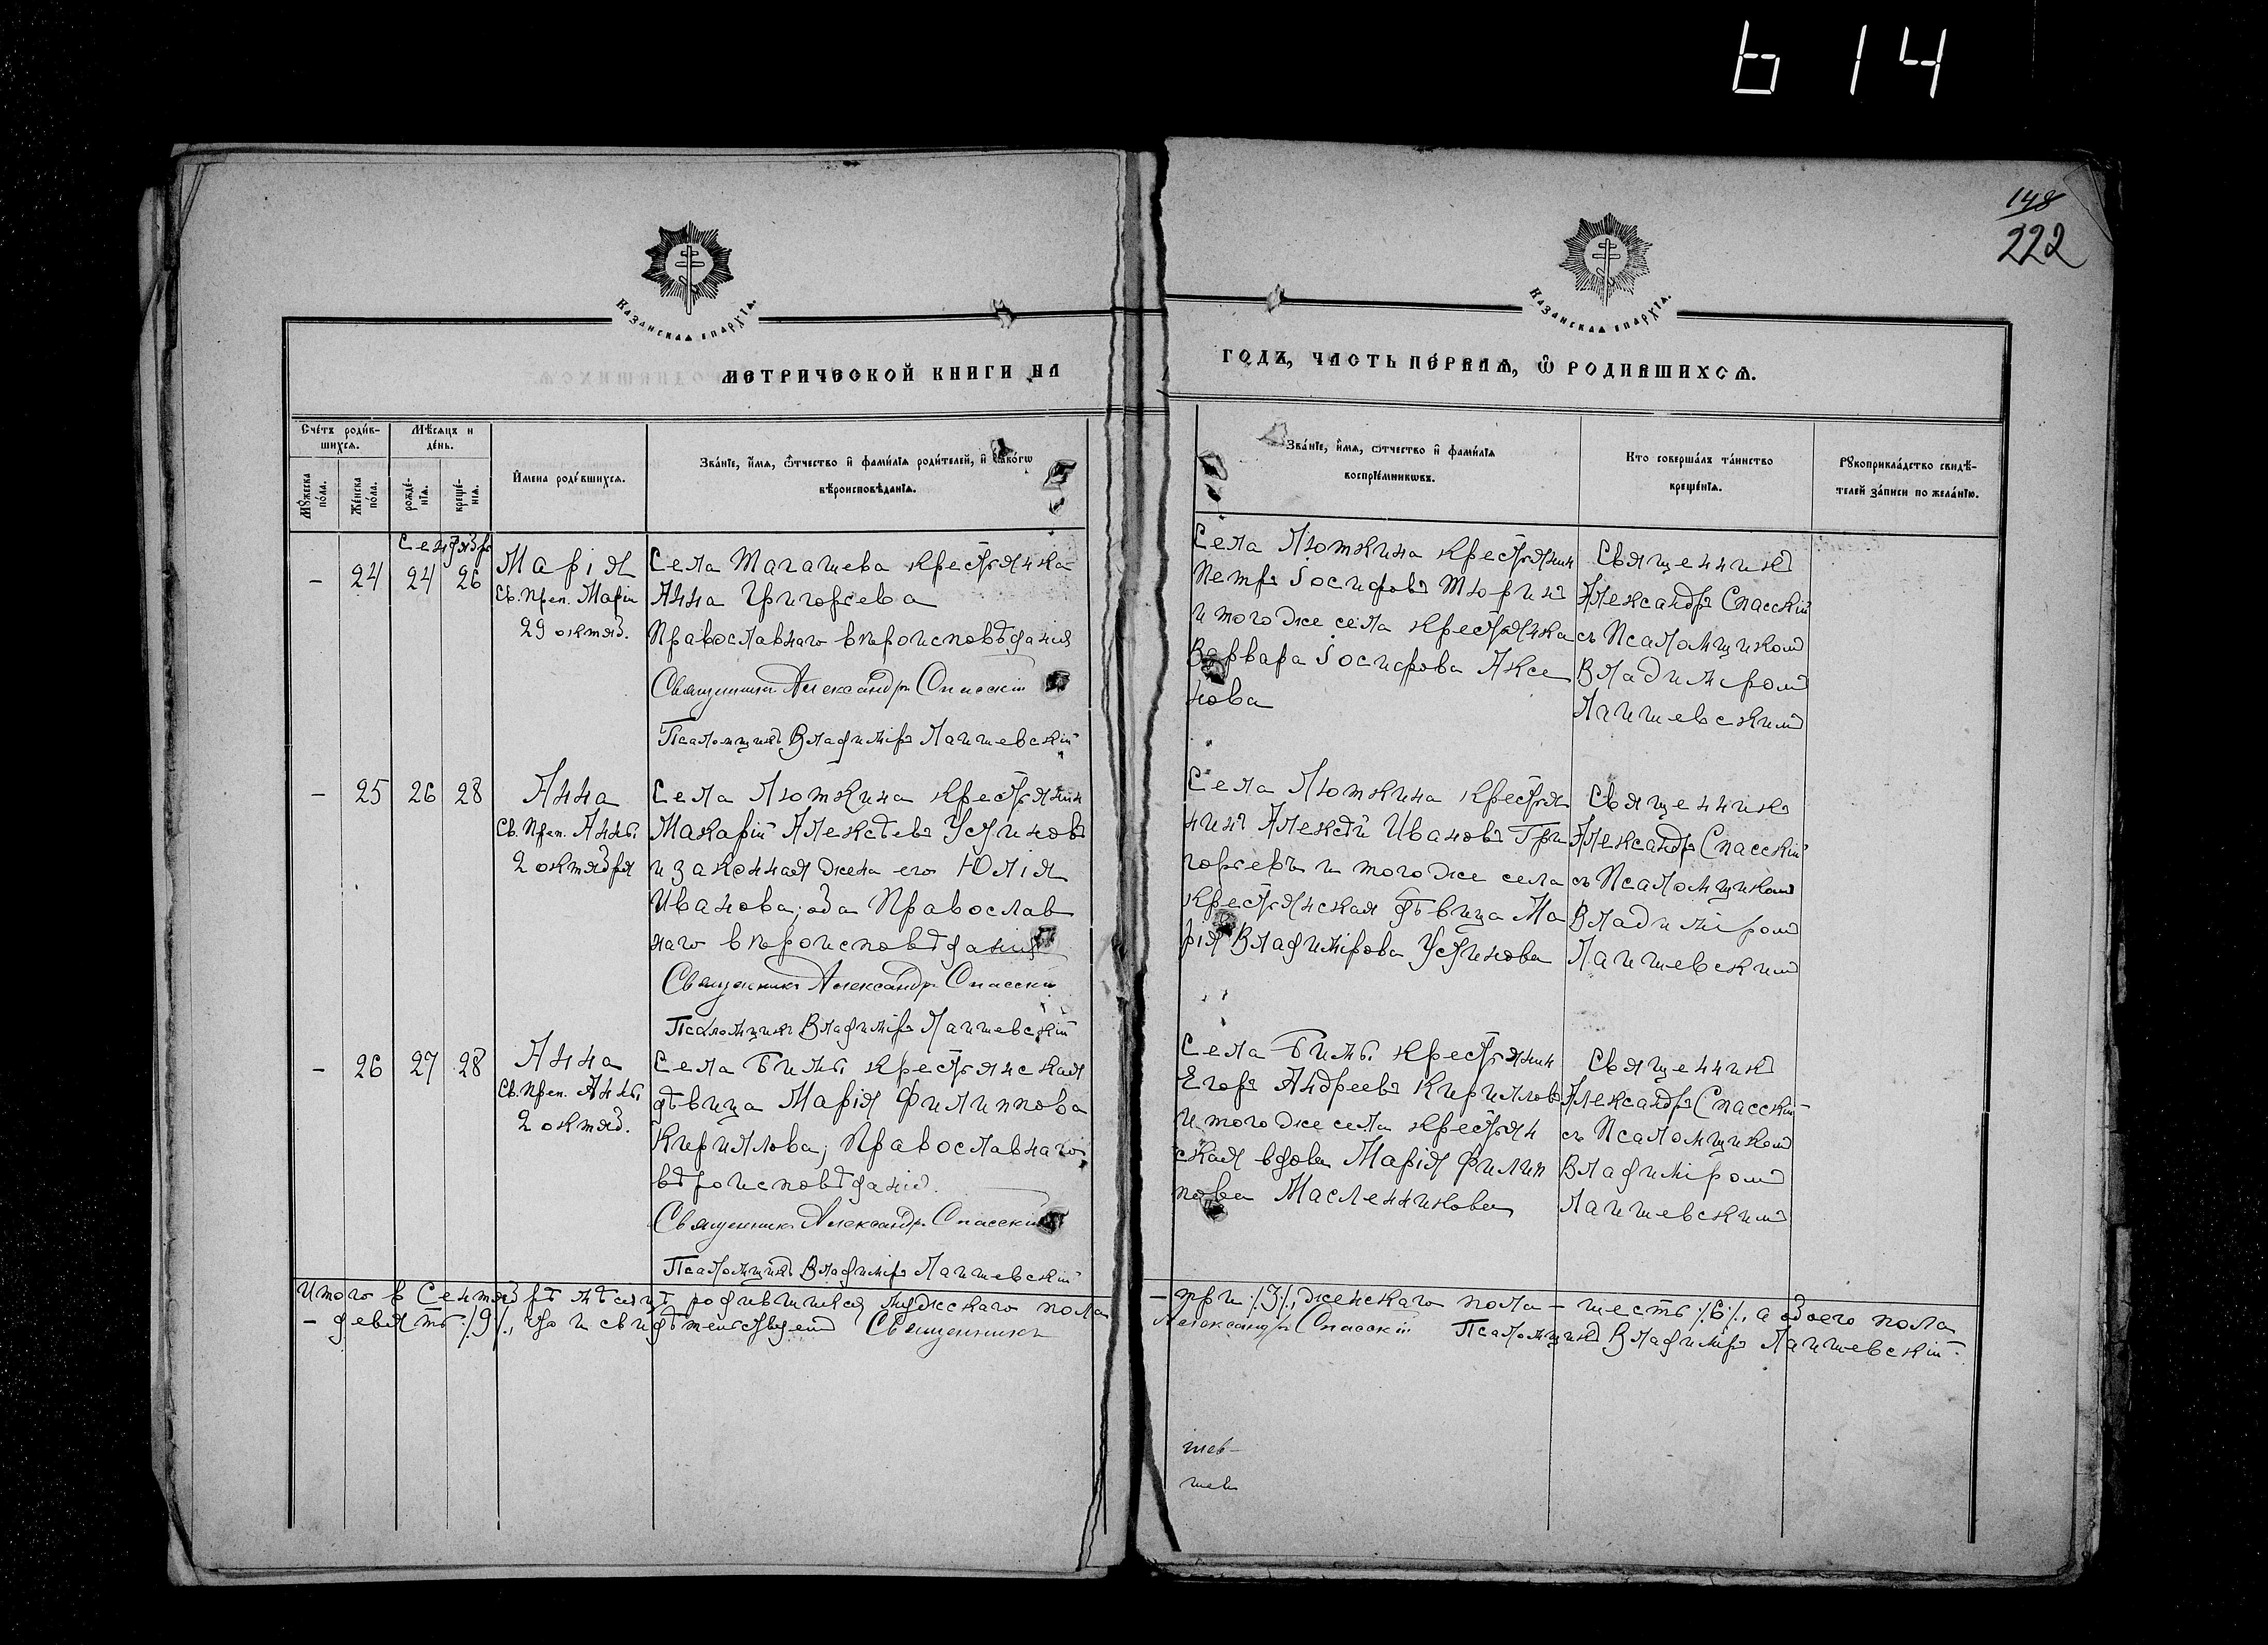 614
148
222
Казанская епархїѧ.
Казанская епархїѧ.
МЕТРИЧЕСКОЙ КНИГИ НА
ГОДЪ, ЧАСТЬ ПЕРВАЯ, Ѽ РОДИВШИХСѦ.
Сче́тъ роди́в-
шихся.
Мѣ́сяцъ и
де́нь.
Му́жеска
по́ла.
Же́нска
по́ла.
рожде́-
нїя.
креще́-
нїя.
И́мена роди́вшихся.
Зва́нїе, и́мя, ѻ́тчество и фами́лїя роди́телей, и како́гѡ
вѣроисповѣ́данїя.
Зва́нїе, и́мя, ѻ́тчество и фами́лїя
воспрїе́мникѡвъ.
Кто соверша́лъ та́инство
креще́нїя.
Рꙋкоприкла́дство свидѣ́-
телей за́писи по жела́нїю.
Сентября
- 24 24 26
Марія
Св. Преп. Маріи
29 октяб.
Села Тагашева крестьянка
Анна Григорьева
Православнаго вѣроисповѣданія
Священникъ Александръ Спасскій
Псаломщикъ Владиміръ Лаишевскій
Села Люткина крестьянин
Петръ Іосифовъ Тюринъ
и того же села крестьянка
Варвара Іосифова Аксе
нова
Священникъ
Александръ Спасскій
съ Псаломщикомъ
Владиміромъ
Лаишевскимъ
- 25 26 28
Анна
Св. Преп. Анны
2 октября
Села Люткина крестьянин
Макарій Алексѣевъ Устиновъ
и законная жена его Юлія
Иванова; оба Православ
наго вѣроисповѣданія
Священникъ Александръ Спасскій
Псаломщикъ Владиміръ Лаишевскій
Села Люткина крестья
нинъ Алексѣй Ивановъ Гри
горьевъ и того же села
крестьянская дѣвица Ма
рія Владимірова Устинова
Священникъ
Александръ Спасскій
съ Псаломщикомъ
Владиміромъ
Лаишевскимъ
- 26 27 28
Анна
Св. Преп. Анны
2 октяб.
Села Бимы крестьянская
дѣвица Марія Филиппова
Кириллова; Православнаго
вѣроисповѣданія.
Священникъ Александръ Спасскій
Псаломщикъ Владиміръ Лаишевскій
Села Бимы крестьянин
Егоръ Андреевъ Кирилловъ
и того же села крестьян
ская вдова Марія Филип
пова Масленникова
Священникъ
Александръ Спасскій
съ Псаломщикомъ
Владиміромъ
Лаишевскимъ
Итого в Сентябрѣ мѣсяцѣ родившихся мужескаго пола – три /3/, женскаго пола – шесть /6/, а обоего пола
– девять /9/, что и свидѣтельствуемъ Священникъ Александръ Спасскій Псаломщикъ Владиміръ Лаишевскій.